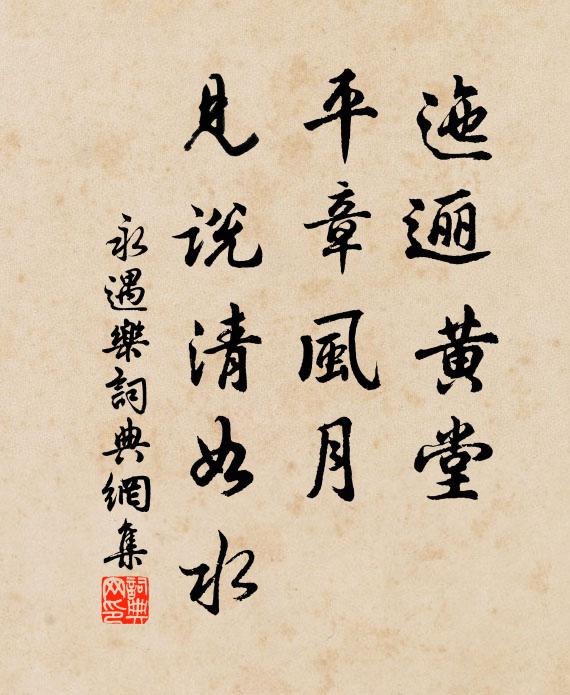 迤逦黄堂
平章風月
見說清如水
永遇樂詞典網集
詞典網印